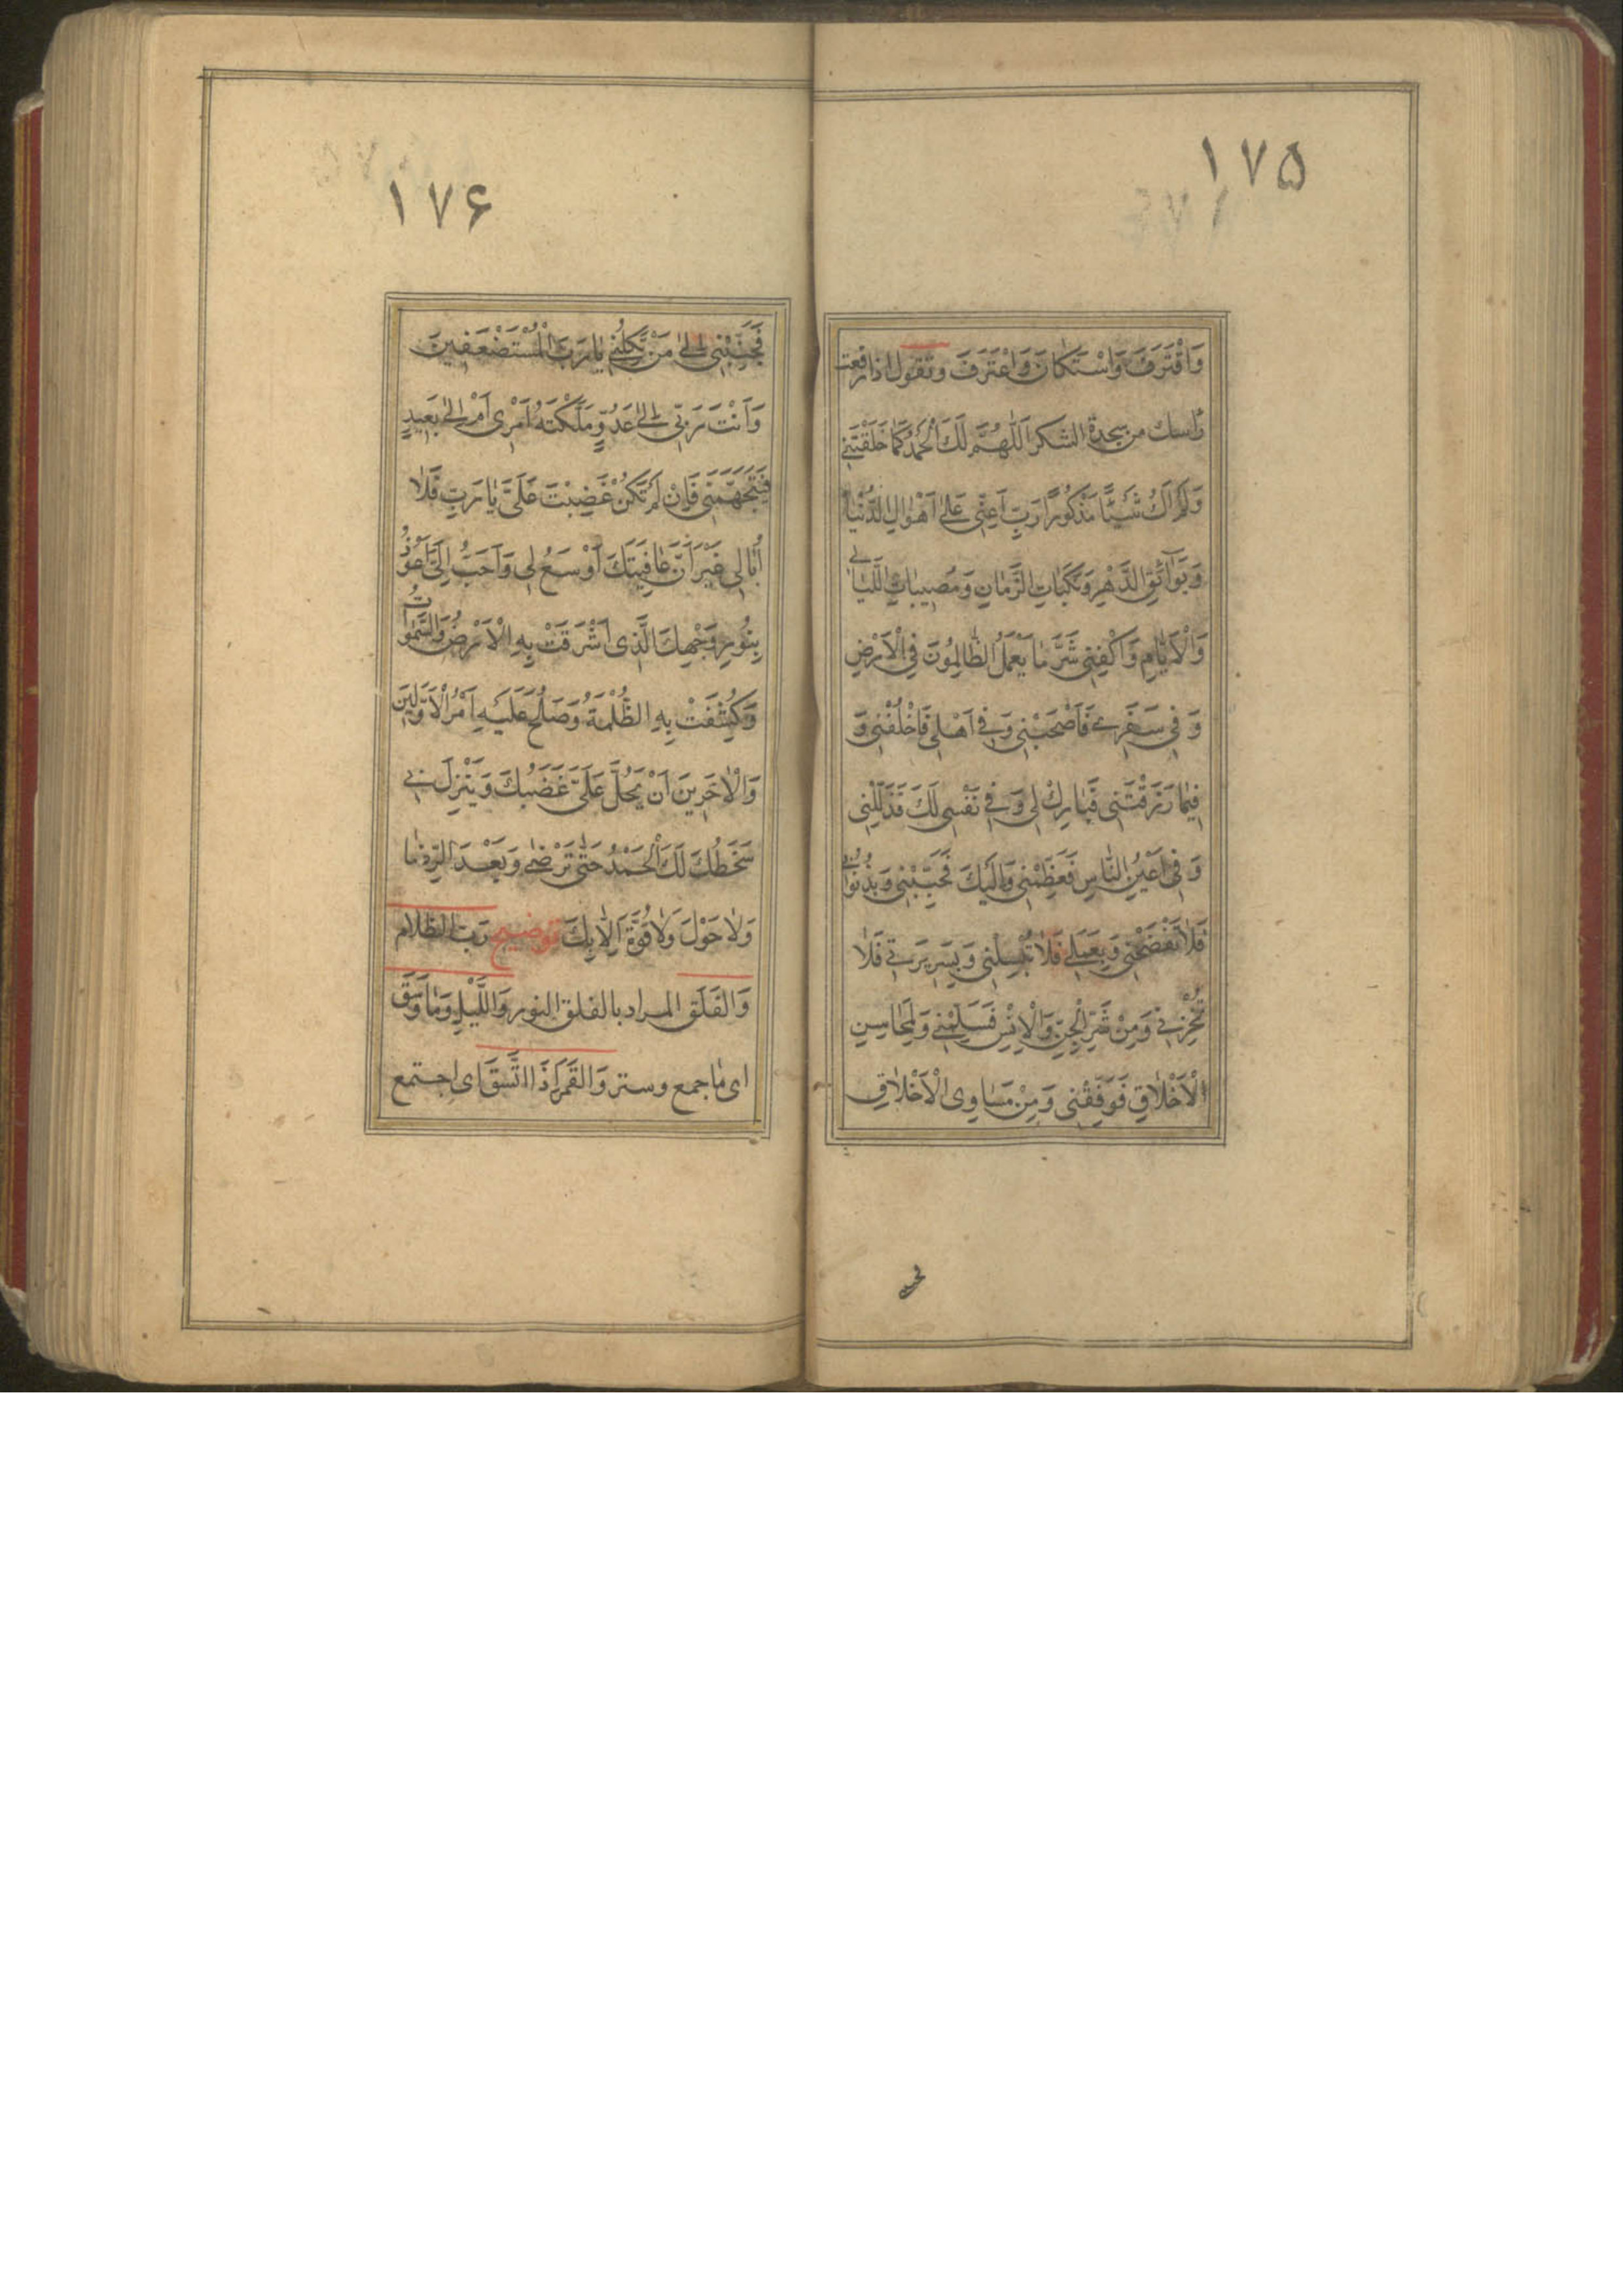 ۱۷۵
وَاقْتَرَفَ وَاسْتَكانَ وَاعْتَرَفَ وتقول اذا رفعت
راسك من سجدة الشكر اَللّٰهُمَّ لَكَ الْحَمْدُ كَمَا خَلَقْتَنِي
وَلَمْ اَكُ شَيْئًا مَذْكُورًا رَبِّ اَعِنِّي عَلى اَهْوالِ الدُّنْيا
وَبَوآئِقِ الدَّهْرِ وَنَكَباتِ الزَّمانِ وَمُصِيباتِ اللَّيالي
وَالْاَيّامِ وَاكْفِنِي شَرَّ ما يَعْمَلُ الظّالِمُونَ فِي الْاَرْضِ
وَفِي سَفَرِي فَاَصْحَبْنِي وَفِي اَهْلِي فَاخْلُفْنِي وَ
فِيما رَزَقْتَنِي فَبارِكْ لِي وَفِي نَفْسِي لَكَ فَذَلِّلْنِي
وَفِي اَعْيُنِ النّاسِ فَعَظِّمْنِي وَاِلَيْكَ فَحَبِّبْنِي وَبِذُنُوبِي
فَلا تَفْضَحْنِي وَبِعَمَلِي فَلا تُبْسِلْنِي وَبِسَرِيرَتِي فَلا
تُخْزِنِي وَمِنْ شَرِّ الْجِنِّ وَالْاِنْسِ فَسَلِّمْنِي وَلِمَحاسِنِ
الْاَخْلاقِ فَوَفِّقْنِي وَمِنْ مَساوِي الْاَخْلاقِ
۱۷۶
فَجَنِّبْنِي اِلى مَنْ تَكِلُنِي يا رَبَّ الْمُسْتَضْعَفِينَ
وَاَنْتَ رَبِّي اِلى عَدُوٍّ مَلَّكْتَهُ اَمْرِي اَمْ اِلى بَعِيدٍ
فَيَتَجَهَّمَنِي فَاِنْ لَمْ تَكُنْ غَضِبْتَ عَلَيَّ يا رَبِّ فَلا
اُبالِي غَيْرَ اَنَّ عافِيَتَكَ اَوْسَعُ لِي وَاَحَبُّ اِلَيَّ اَعُوذُ
بِنُورِ وَجْهِكَ الَّذِي اَشْرَقَتْ بِهِ الْاَرْضُ وَالسَّمٰواتُ
وَكُشِفَتْ بِهِ الظُّلْمَةُ وَصَلُحَ عَلَيْهِ اَمْرُ الْاَوَّلِينَ
وَالْاخَرِينَ اَنْ يَحُلَّ عَلَيَّ غَضَبُكَ وَيَنْزِلَ بِي
سَخَطُكَ لَكَ الْحَمْدُ حَتّى تَرْضى وَبَعْدَ الرِّضا
وَلا حَوْلَ وَلا قُوَّةَ اِلّا بِكَ توضيح رَبَّ الظلام
وَالفَلَق المراد بالفلق النور وَاللَّيْلِ وَما وَسَقَ
اى ما جمع وستر وَالقَمَرِ اِذَا اتَّسَقَ اى اجتمع